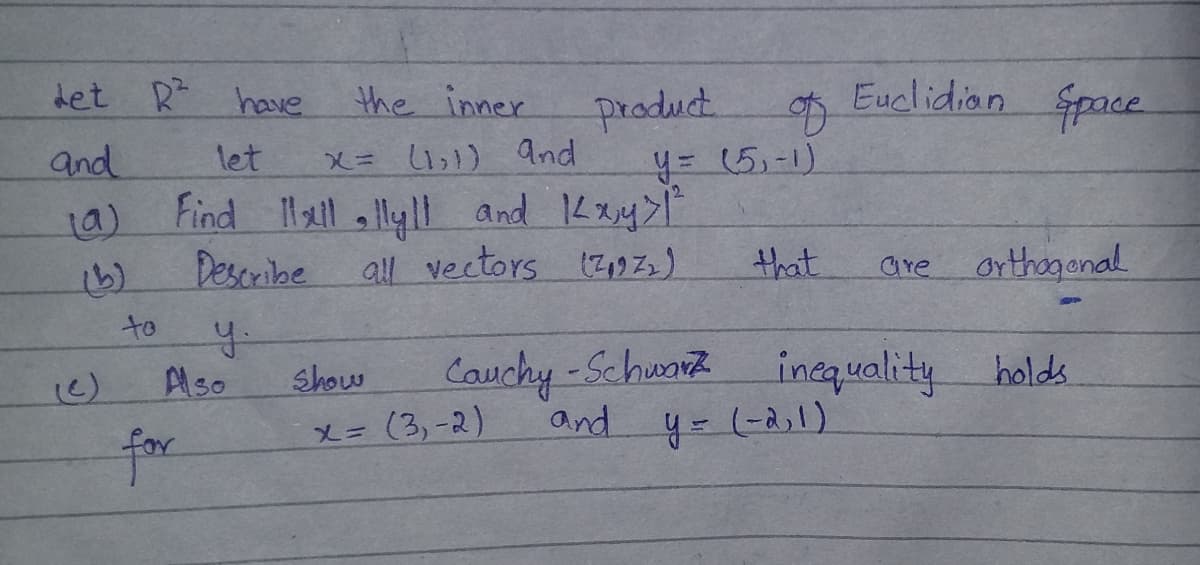 Let R² have the inner product of Euclidian Space
and let x= (1,1) and y= (5,-1)
(a) Find ||x||, ||y|| and |<x,y>|²
(b) Describe all vectors (z₁,z₂) that are orthogonal
to y.
(c) Also show Cauchy-Schwarz inequality holds
for x= (3,-2) and y= (-2,1)